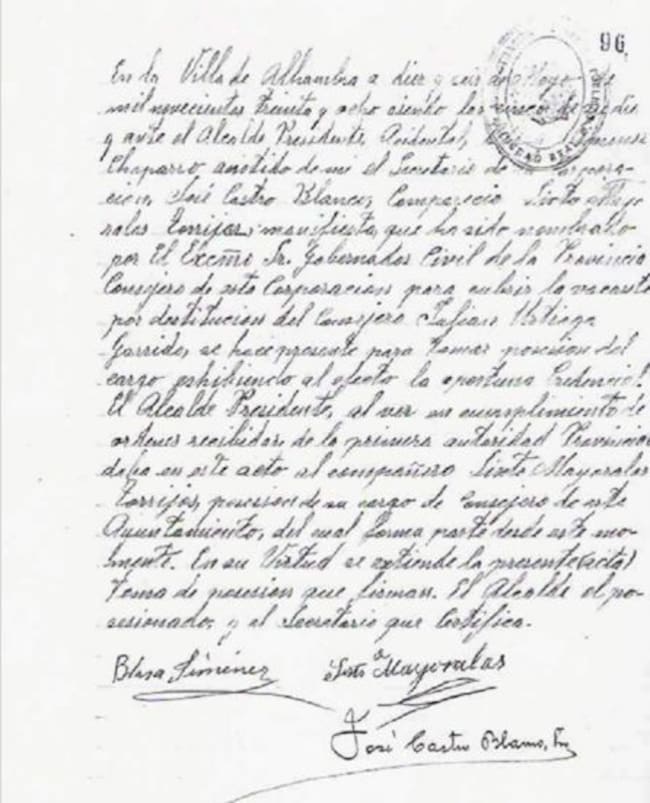 96
En la Villa de Alhambra a diez y seis de Mayo de
mil novecientos treinta y ocho siendo las cinco de
y ante el Alcalde Presidente, Acidental,
Chaparro asistido de mi el Secretario de
cion, José Castro Blanco, Comparecio Sixto Mayo
rales Torrijos, manifiesta, que ha sido nombrado
por El Excmo Sr. Gobernador Civil de la Provincia
Consejero de esta Corporacion para cubrir la vacante
por destitucion del Consejero Julian
Garrido, se hace presente para tomar posesion del
cargo exhibiendo al efecto la oportuna Credencial.
El Alcalde Presidente, al ver en cumplimiento de
ordenes recibidas de la primera autoridad Provincial
en este acto al compañero Sixto Mayorales
Torrijos, posesion de su cargo de Consejero de este
Ayuntamiento, del cual forma parte desde este mo-
mento. En su Virtud se extiende la presente (acta)
toma de posesion que firman. El Alcalde el po-
sesionado, y el Secretario que Certifica.
Blasa Jiménez Sixto Mayoralas
José Castro Blanco,